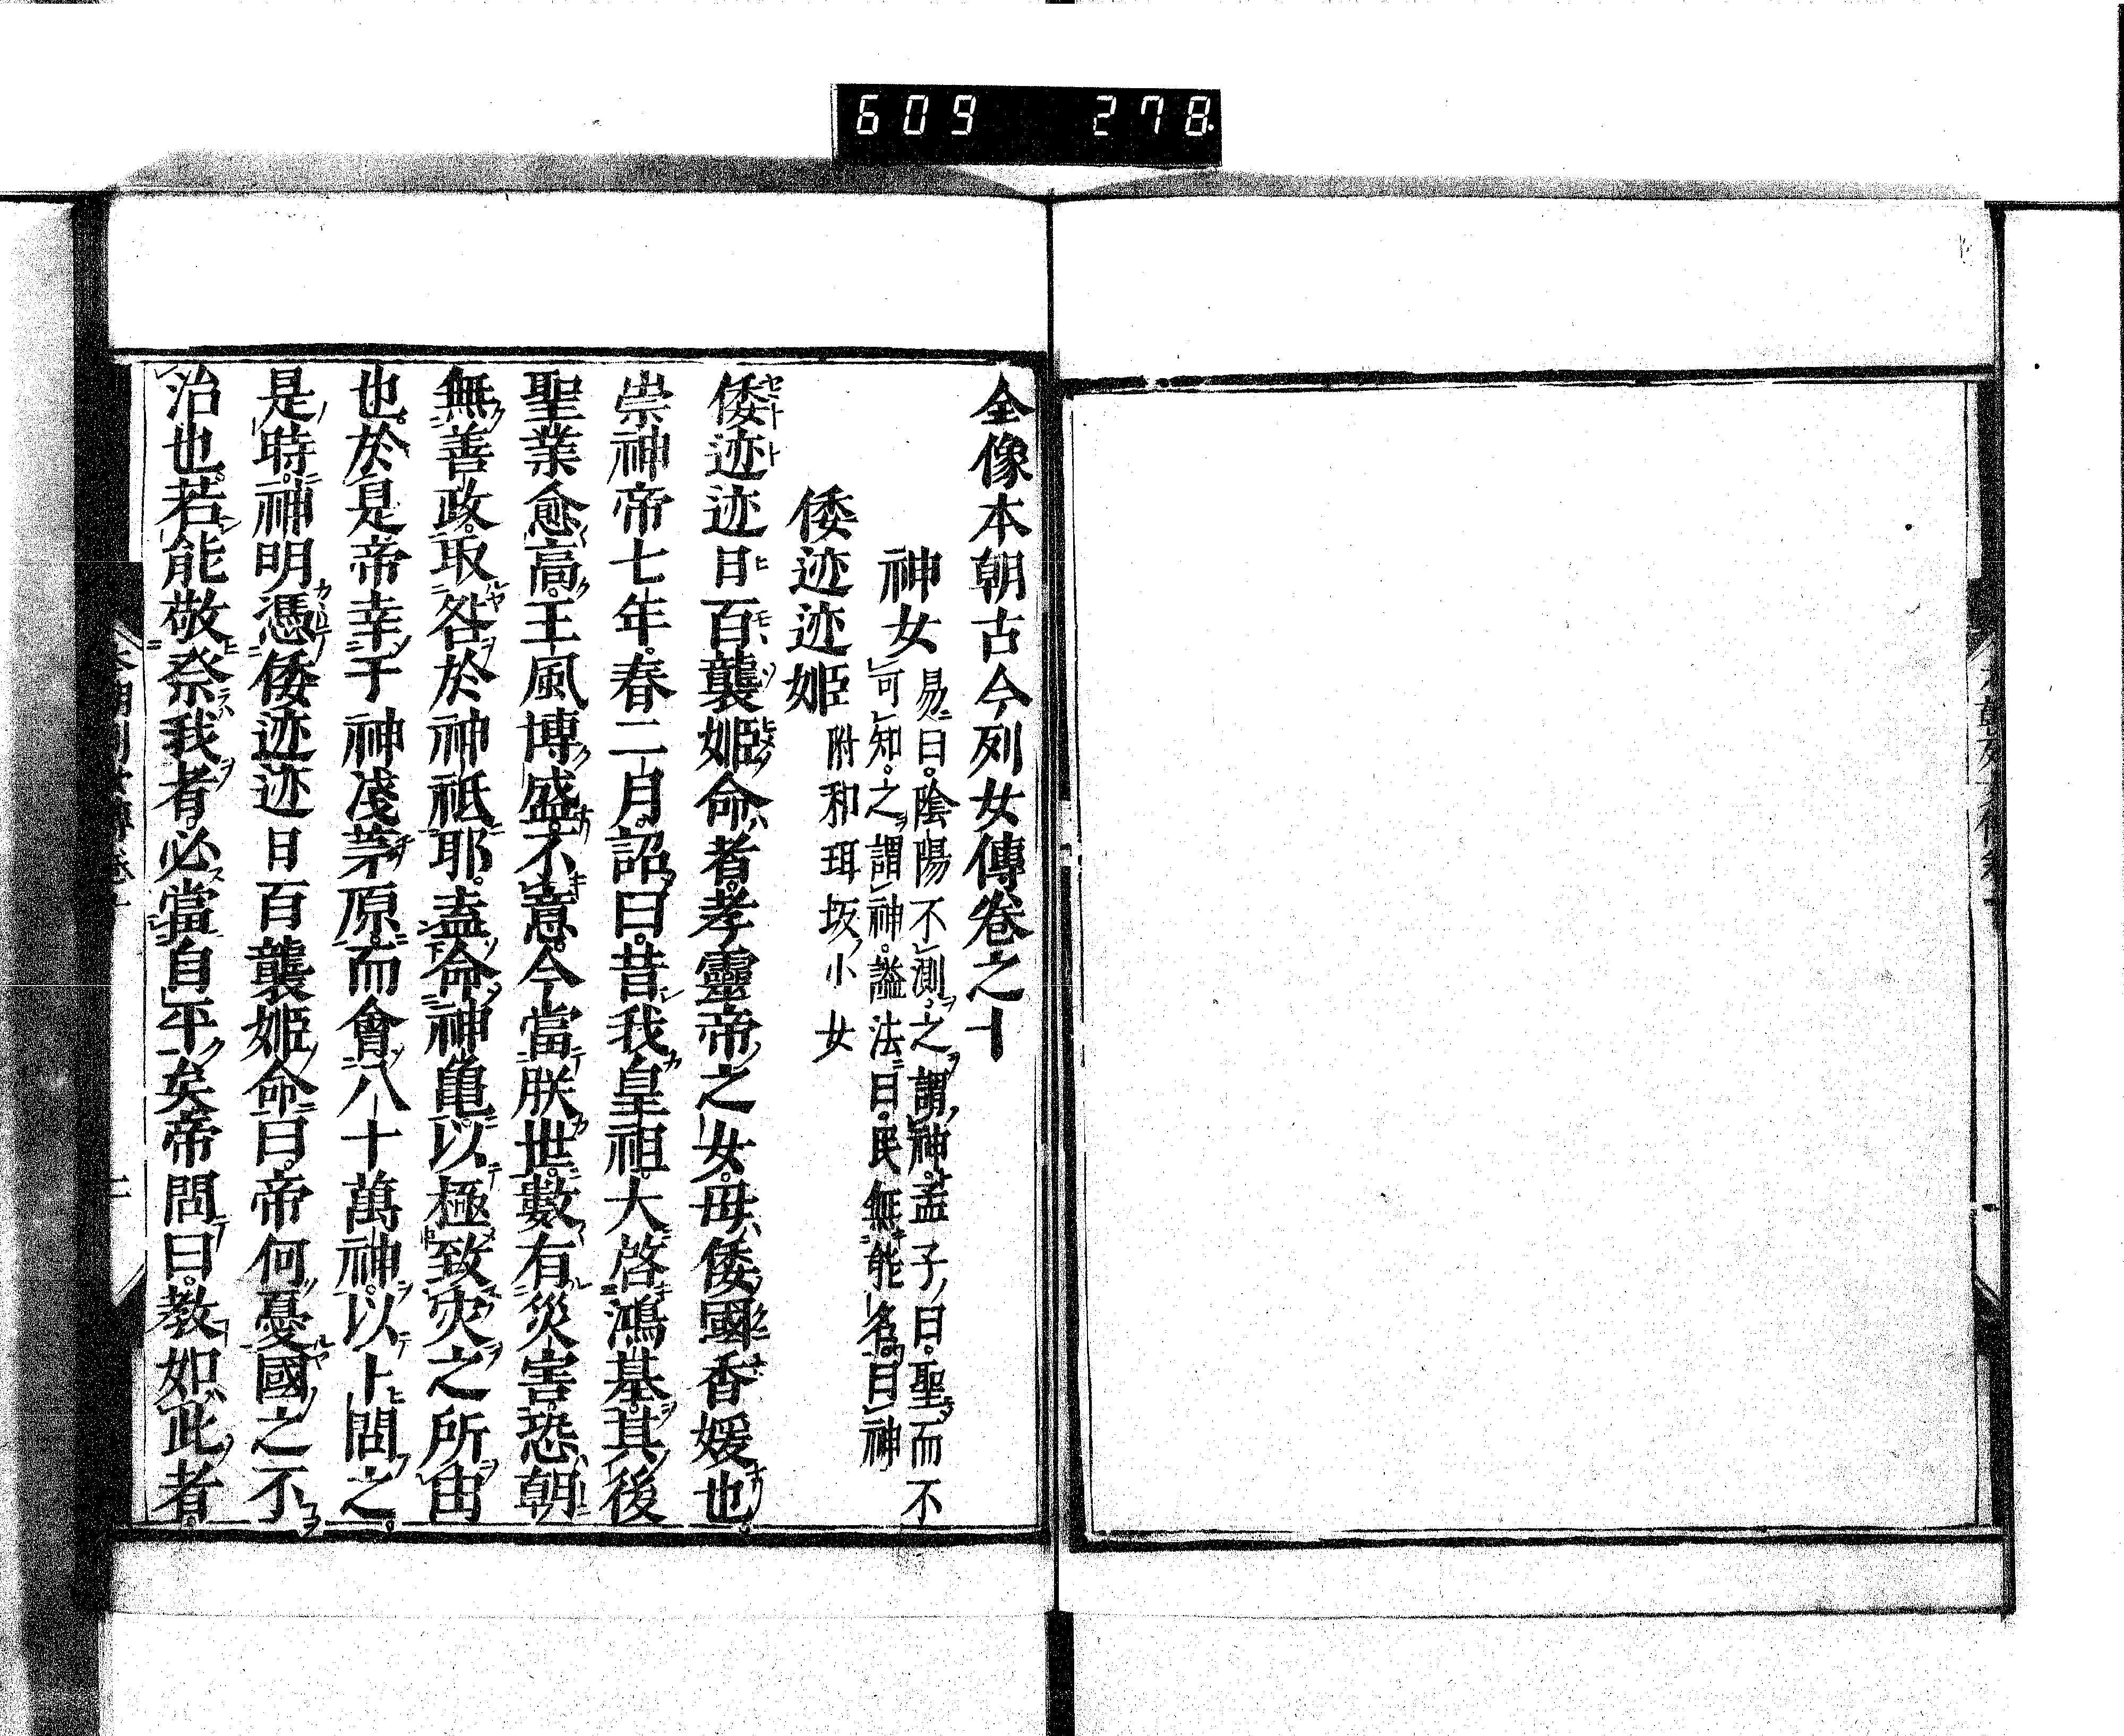 609 278
全像本朝古今列女傳卷之十
神女
易曰。陰陽不測。之謂神。孟子曰。聖而不
可知。之謂神。謚法曰。民無能名曰神
倭迹迹姬
附和珥坂小女
倭迹迹日百襲姬命者。孝靈帝之女。母倭國香媛也。
崇神帝七年。春二月。詔曰。昔我皇祖。大啓鴻基。其後
聖業愈高。王風博盛。不意。今當朕世。數有災害。恐朝
無善政。取咎於神祇耶。盍命神龜以極致灾之所由
也。於是帝幸于神淺茅原。而會八十萬神。以卜問之。
是時。神明憑倭迹迹日百襲姬命曰。帝何憂國之不
治也。若能敬祭我者。必當自平矣帝問曰。教如此者。